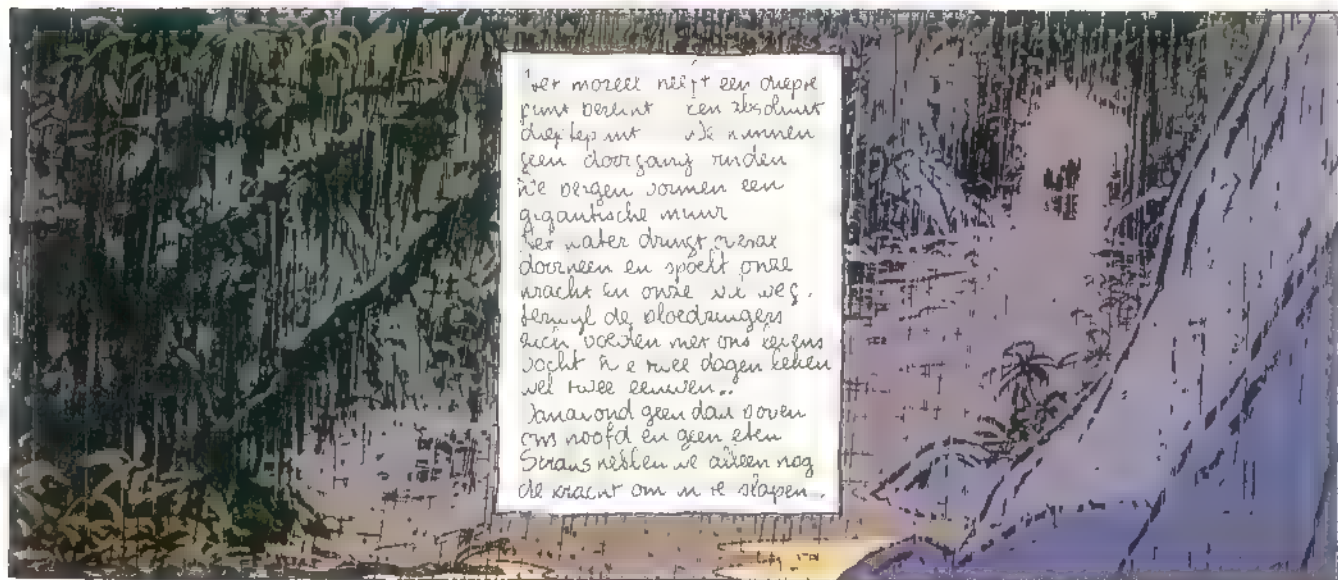 Het moreel heeft een diepte
punt bereikt een absoluut
dieptepunt We kunnen
geen doorgang vinden
De bergen vormen een
gigantische muur
Het water dringt overal
doorheen en spoelt onze
kracht en onze wil weg.
terwijl de bloedzuigers
zich voeden met ons levens
vocht Die twee dagen leken
wel twee eeuwen...
Vanavond geen dak boven
ons hoofd en geen eten
Straks hebben we alleen nog
de kracht om in te slapen.